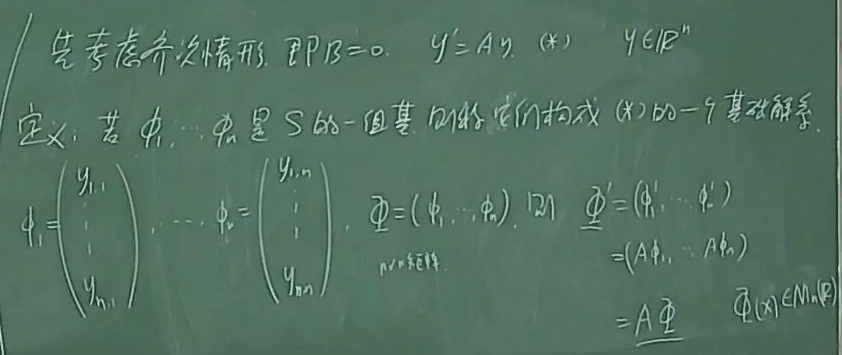 先考虑齐次情形. 即B=0. y'=Ay. (*) y∈ℝⁿ
定义: 若 ϕ₁, ⋯, ϕₙ 是 S 的一组基 则称它们构成 (*) 的一个基础解系.
ϕ₁=(y₁,₁ ⋮ yₙ,₁), ⋯, ϕₙ=(y₁,ₙ ⋮ yₙ,ₙ). Φ=(ϕ₁,⋯,ϕₙ). 则 Φ'=(ϕ₁',⋯ϕₙ')
n×n矩阵.
=(Aϕ₁,⋯Aϕₙ)
=AΦ Φ(x)∈Mₙ(ℝ)